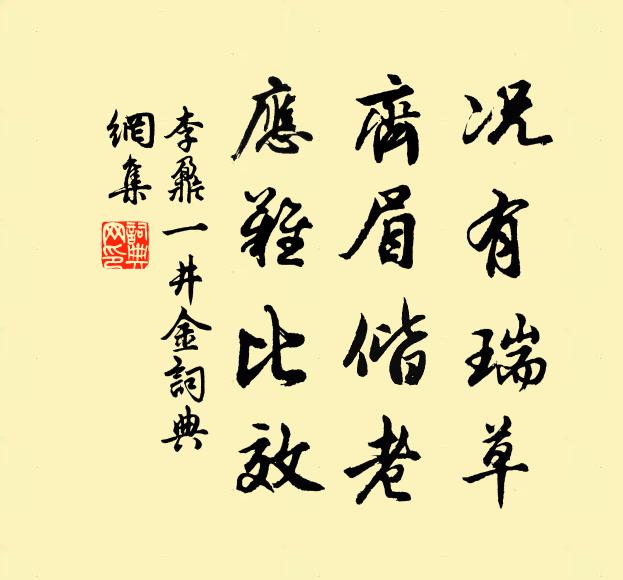 况有瑞草
齊眉偕老
應難比效
李鼐一井金詞典
網集
詞典
网印